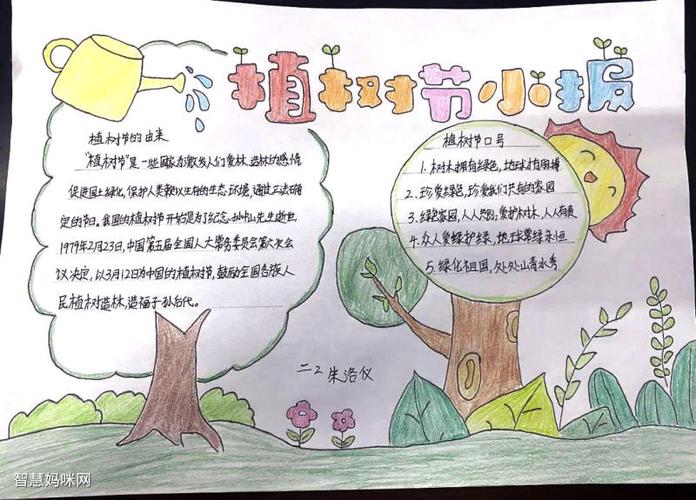 植树节小报
植树节的由来
"植树节"是一些国家为激发人们爱林、造林的感情
促进国土绿化，保护人类赖以生存的生态环境，通过立法确
定的节日。我国的植树节开始是为了纪念孙中山先生逝世，
1979年2月23日，中国第五届全国人大常务委员会第六次会
议决定，以3月12日为中国的植树节，鼓励全国各族人
民植树造林，造福子孙后代。
植树节口号
1. 树木拥有绿色，地球才有脉搏
2. 珍爱绿色，珍爱我们共有的家园
3. 绿色家园，人人共创，爱护树木，人人有责
4. 众人爱绿护绿，地球常绿永恒
5. 绿化祖国，处处山青水秀
二2 朱洛仪
智慧妈咪网